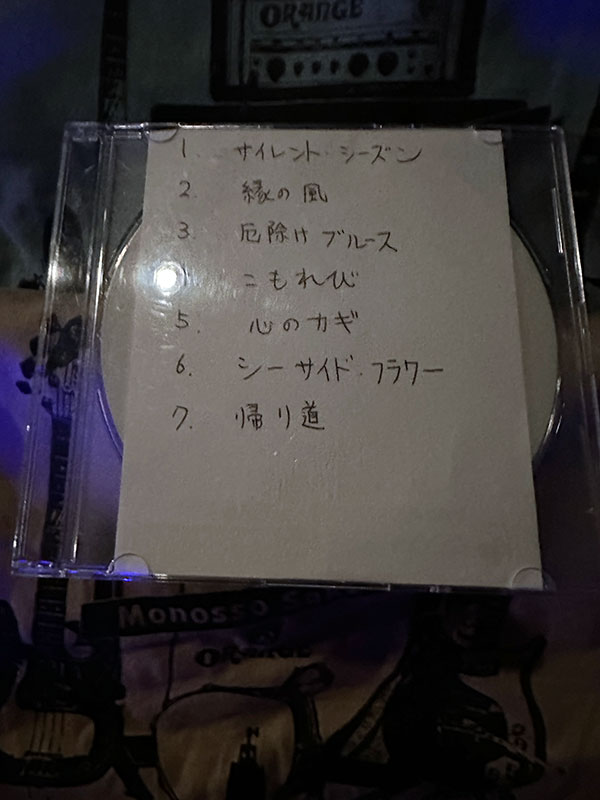 ORANGE
1. サイレント・シーズン
2. 縁の風
3. 厄除けブルース
4. こもれび
5. 心のカギ
6. シーサイド・フラワー
7. 帰り道
Monosso
ORANGE